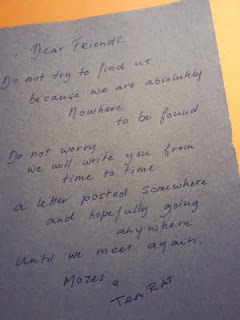 Dear Friends.
Do not try to find us
because we are absolutely
Nowhere
to be found
Do not worry
we will write you from
time to time
a letter posted somewhere
and hopefully going
anywhere
Until we meet again.
Mozes &